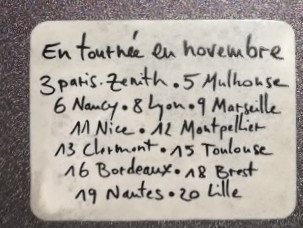 En tournée en novembre
3 paris. Zenith • 5 Mulhouse
6 Nancy • 8 Lyon • 9 Marseille
11 Nice • 12 Montpellier
13 Clermont • 15 Toulouse
16 Bordeaux • 18 Brest
19 Nantes • 20 Lille